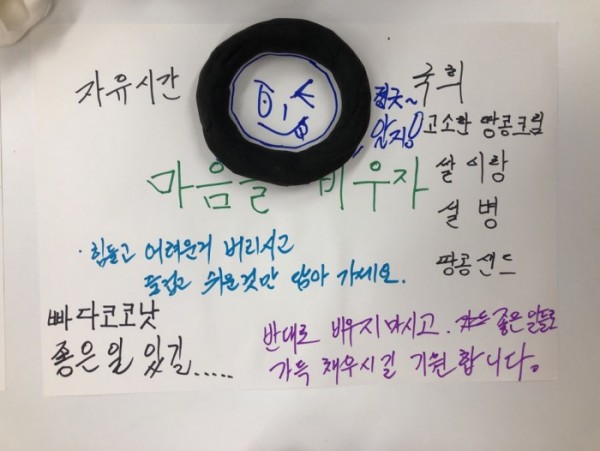 자유시간
국희
고소한 땅콩크림
쌀이랑
설병
땅콩샌드
힝긋~
알지?
마음을 비우자
· 힘들고 어려운거 버리시고
즐겁고 쉬운것만 담아 가세요.
빠다코코낫
좋은일 있길.....
반대로 배우지마시고. 좋은 일들로
가득 채우시길 기원합니다.